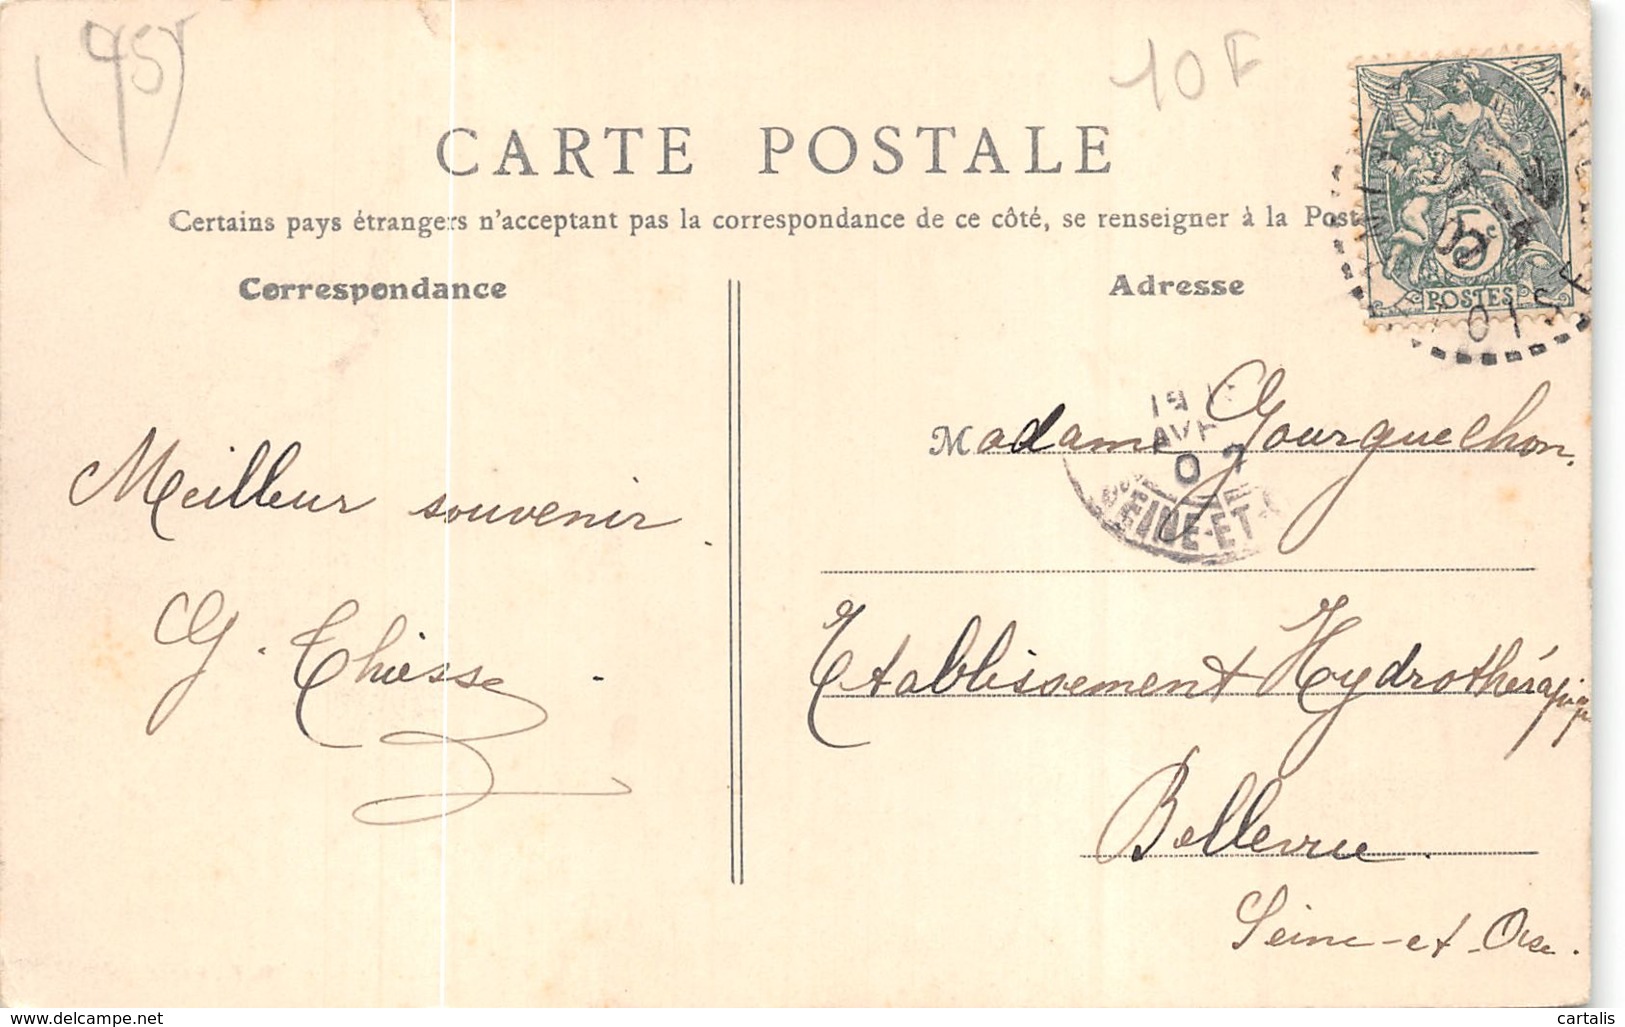 (95)
10 F
CARTE POSTALE
Certains pays étrangers n'acceptant pas la correspondance de ce côté, se renseigner à la Post
Correspondance
Adresse
5c
POSTES
OISE
19
AVR
07
SEINE-ET-O
Madame Gourguechon,
Etablissement Hydrothérapiq
Bellevue.
Seine-et-Oise.
Meilleur souvenir.
G. Thiesse.
www.delcampe.net
cartalis